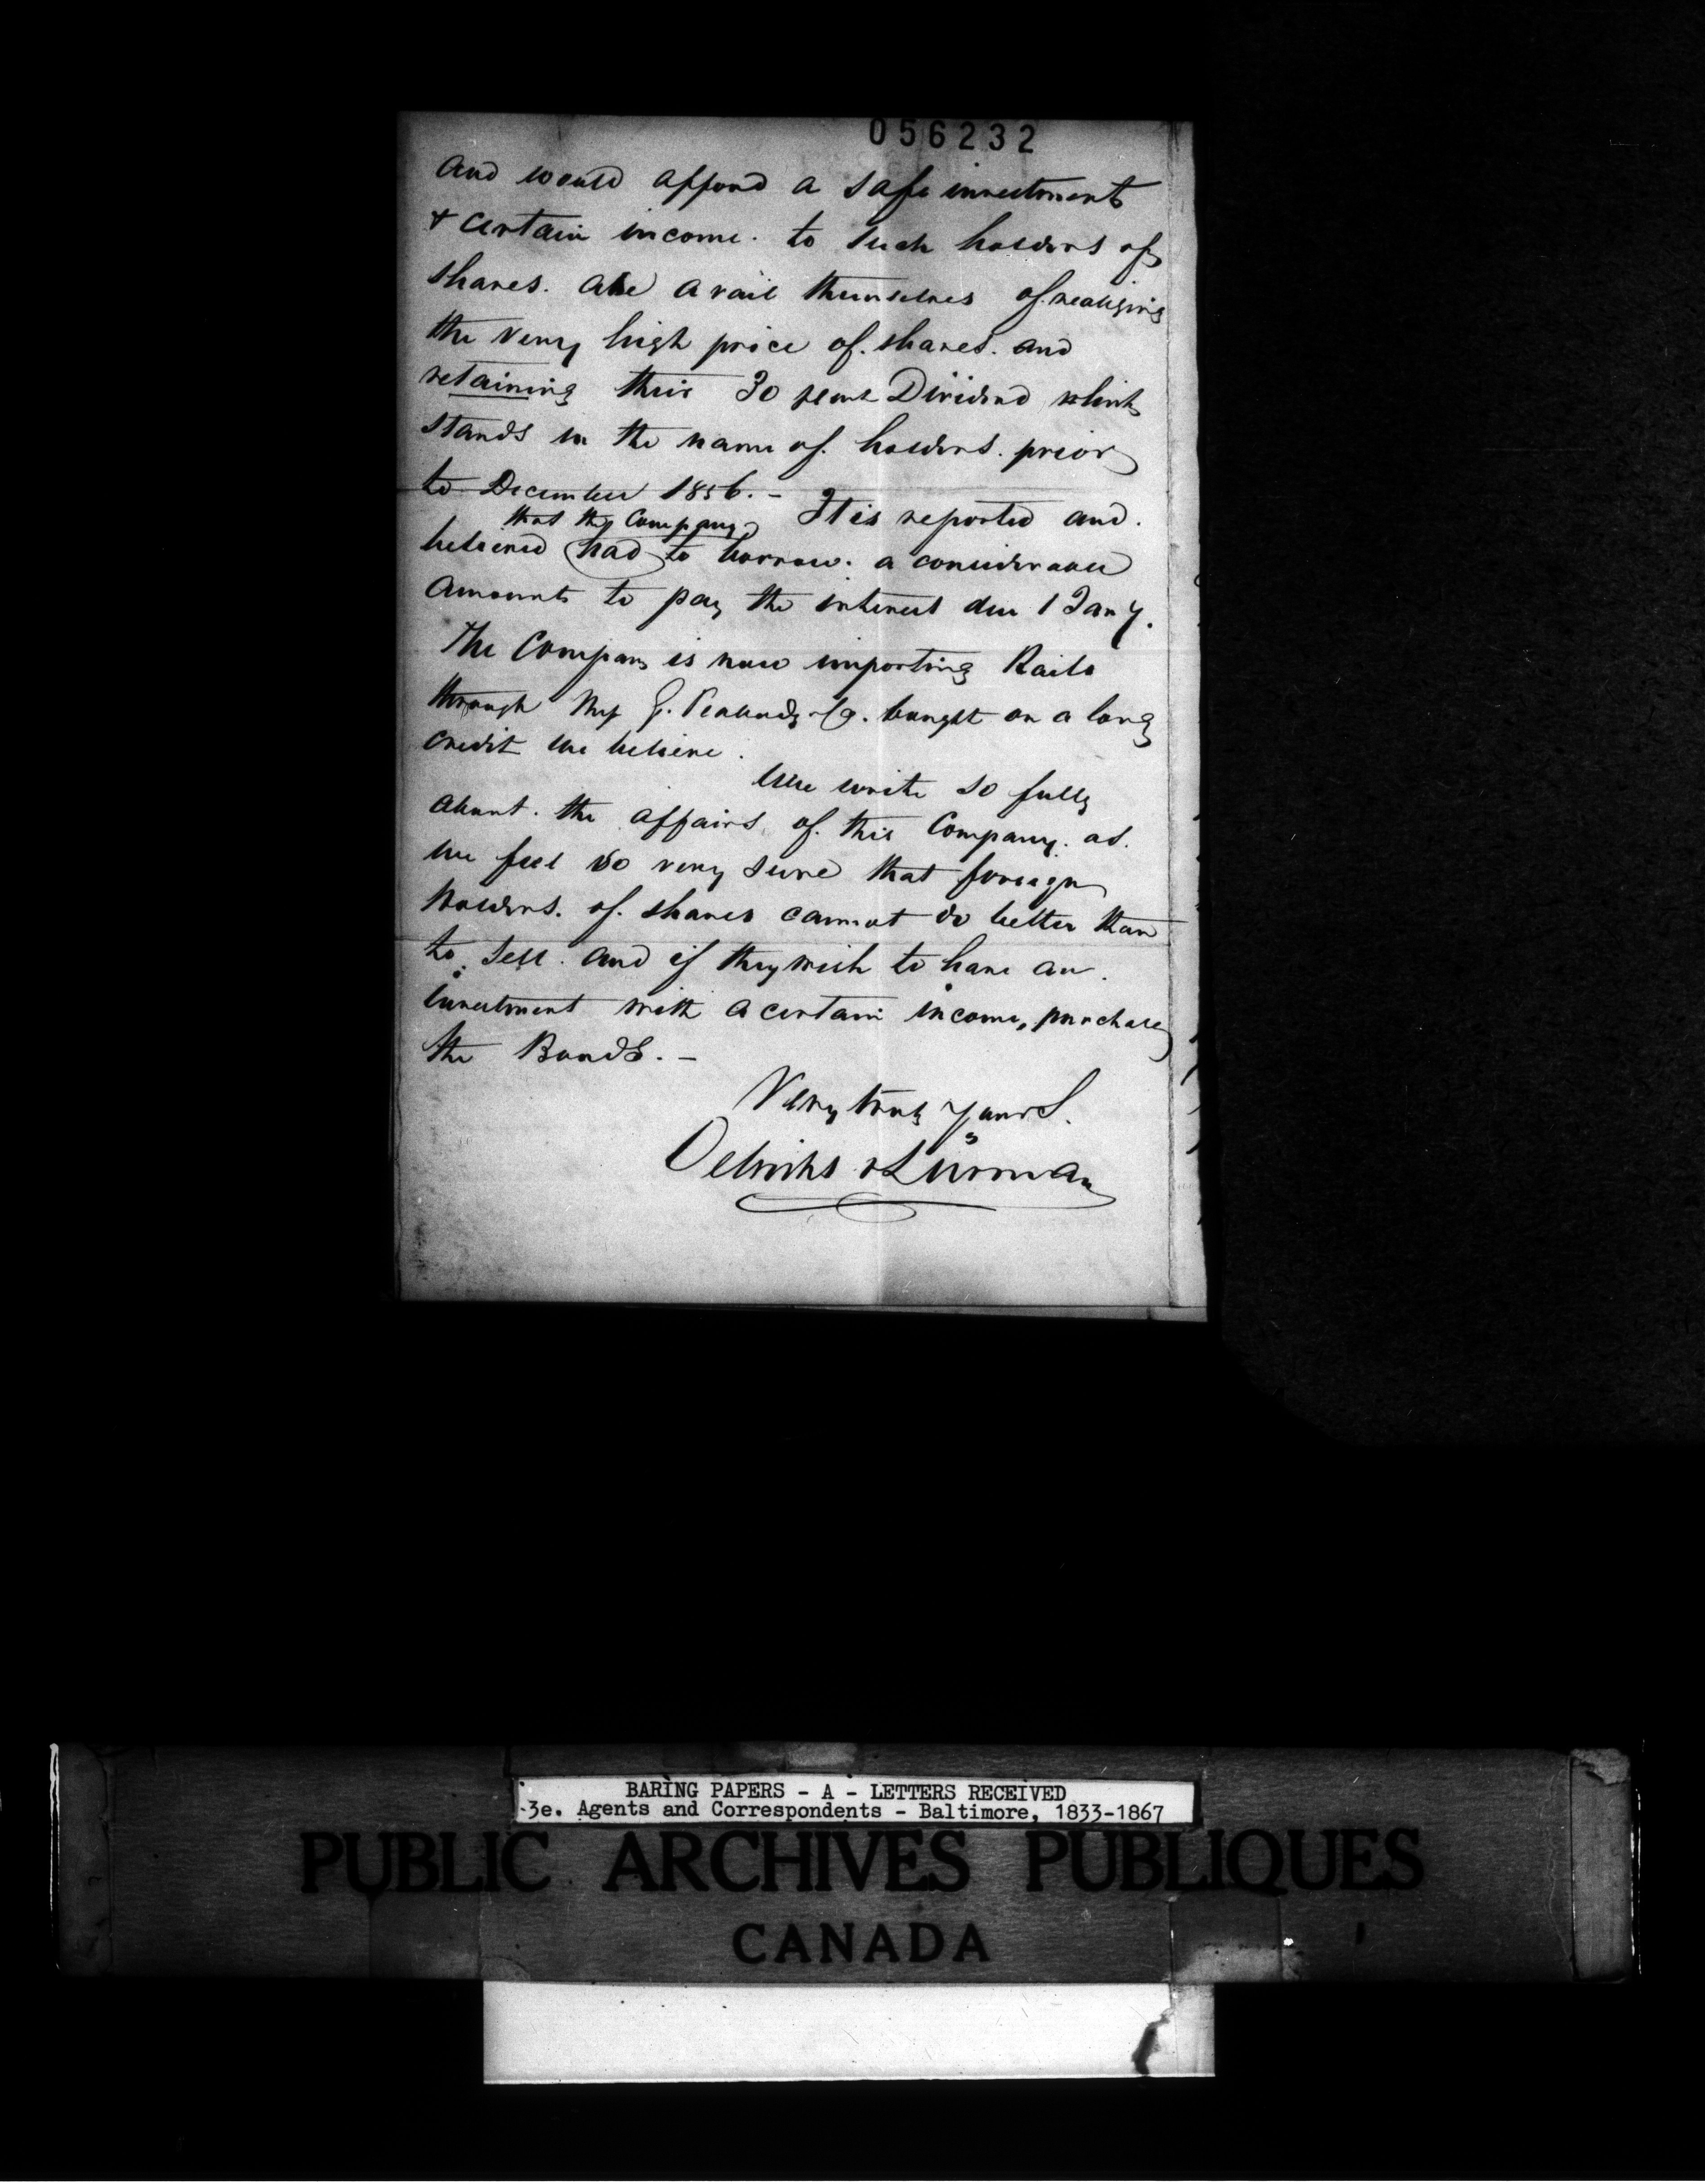 056232
and would afford a safe investment
& certain income. to such holders of
shares. as avail themselves of. realizing
the very high price of. shares. and
retaining their 30 pCent Dividend which
stands in the name of. holders. prior
to December 1856. - It is reported and.
that the Company
believed had to borrow. a considerable
amount to pay the interest due 1 Jany.
The Company is now importing Rails
through G. Peabody & Co. bought on a long
credit we believe.
We write so fully
about. the affairs of. this Company. as.
we feel so very sure that foreign
holders. of. shares cannot do better than
to sell. and if they wish to have an.
investment with a certain income, purchase
the Bonds. -
Very truly yours.
Oelrichs & Lürman
BARING PAPERS - A - LETTERS RECEIVED
3e. Agents and Correspondents - Baltimore, 1833-1867
PUBLIC ARCHIVES PUBLIQUES
CANADA